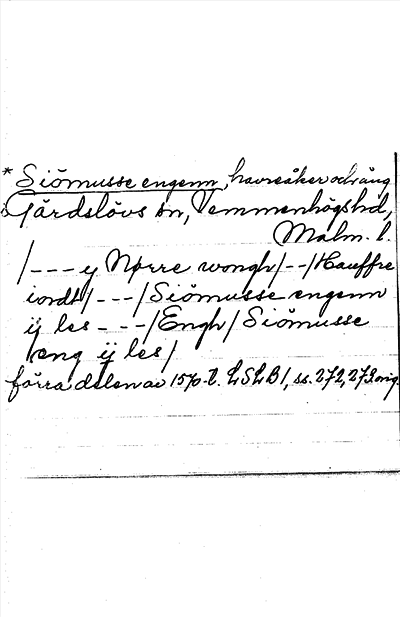 * Siömusse engenn, havreåker och äng
i Gärdslövs sn, Vemmenhögs hd,
Malm. l.
/--- y Nörre wongh/--/Hauffre
iordt/---/Siömusse engenn
ÿ les ---/Engh/ Siömusse
eng ÿ les/
förra delen av 1570-t. LSLB 1, ss. 272, 273 orig.